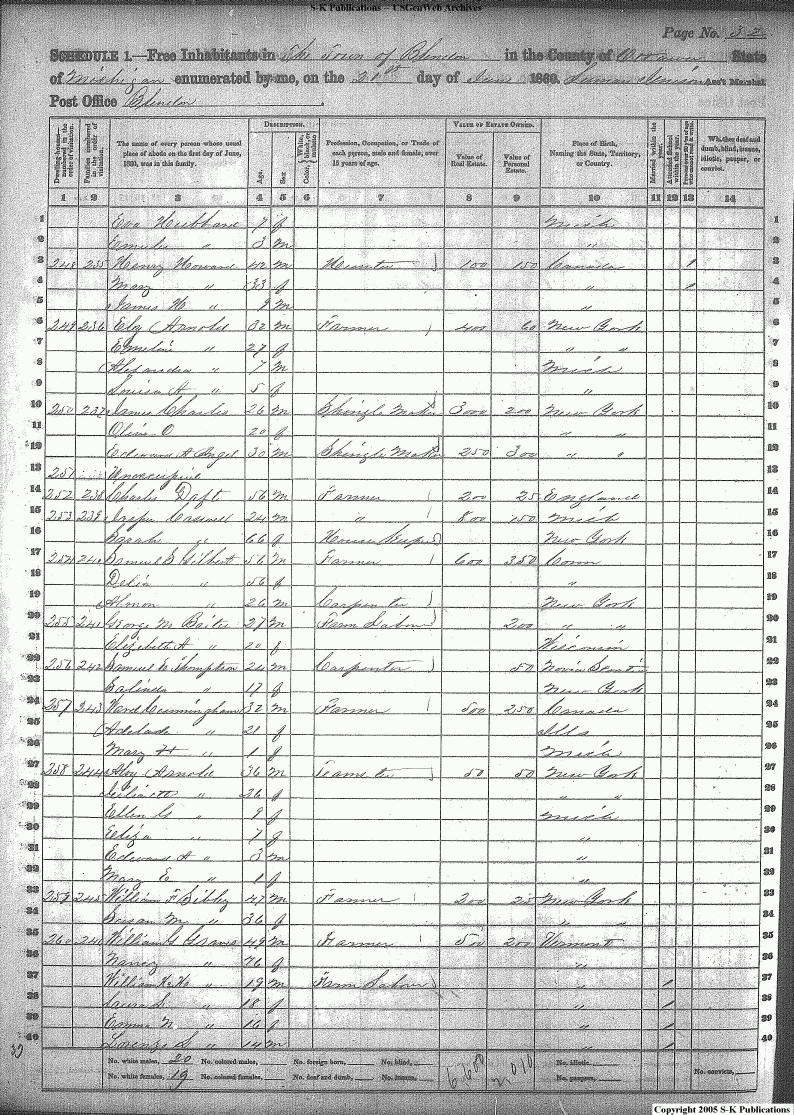 S-K Publications – USGenWeb Archives
Page No. 32
SCHEDULE 1.—Free Inhabitants in The Town of Blendon in the County of Ottawa State
of Michigan enumerated by me, on the 20th day of June 1860. Ass't Marshal
Post Office Blendon
Dwelling-houses—numbered in the order of visitation.
Families numbered in the order of visitation.
The name of every person whose usual place of abode on the first day of June, 1860, was in this family.
DESCRIPTION.
Age.
Sex
White, black, or mulatto
Color,
Profession, Occupation, or Trade of each person, male and female, over 15 years of age.
VALUE OF ESTATE OWNED.
Value of Real Estate.
Value of Personal Estate.
Place of Birth, Naming the State, Territory, or Country.
Married within the year.
Attended School within the year.
Whether deaf and dumb, blind, insane, idiotic, pauper, or convict.
1 2 3 4 5 6 7 8 9 10 11 12 13 14
1 Eva Hubbard 7 f Mich 1
2 3 m " 2
3 248 235 Henry Howard 42 m 100 150 Canada / 3
4 Mary " 33 f " / 4
5 James H " 9 m " 5
6 249 236 Ely Arnold 32 m Farmer 400 60 New York 6
7 Emeline " 27 f " " 7
8 " 7 m Mich 8
9 Louisa A " 5 f " 9
10 250 237 James Charles 26 m Shingle Maker 3000 200 New York 10
11 Olive O 20 f " " 11
12 Edward A Angel 30 m Shingle Maker 250 300 " " 12
13 251 Unoccupied 13
14 252 238 Charles Daft 56 m Farmer 200 25 England 14
15 253 239 Caswell 24 m " 800 150 Mich 15
16 Sarah " 66 f House Keeper New York 16
17 254 240 Samuel Gilbert 56 m Farmer 600 350 Conn 17
18 Delia " 56 f " 18
19 Almon " 26 m Carpenter New York 19
20 255 241 George M 27 m Farm Labor 200 " " 20
21 Elizabeth A " 20 f Wisconsin 21
22 256 242 Samuel Thompson 24 m Carpenter 50 Nova Scotia 22
23 " 17 f New York 23
24 257 243 Ward Cunningham 32 m Farmer 500 250 Canada 24
25 Adelade " 21 f Ills 25
26 Mary H " 1 f Mich 26
27 258 244 Arnold 36 m Teamster 50 50 New York 27
28 " 26 f " " 28
29 Ellen G " 9 f Mich 29
30 Eliza " 7 f " 30
31 Edward A " 3 m " 31
32 Mary E " 1 f " 32
33 259 245 William F Sibley 47 m Farmer 200 25 New York 33
34 Susan M " 36 f " " 34
35 260 246 William G Graves 49 m Farmer 50 200 Vermont 35
36 Nancy " 76 f " 36
37 William H H " 19 m Farm Labor " / 37
38 Laura S " 18 f " / 38
39 Emma N " 16 f " / 39
40 Lorenzo S " 14 m " / 40
No. white males, 20 No. colored males, No. foreign born, No. blind, No. idiotic,
No. white females, 19 No. colored females, No. deaf and dumb, No. insane, No. paupers, No. convicts,
2,010
Copyright 2005 S-K Publications